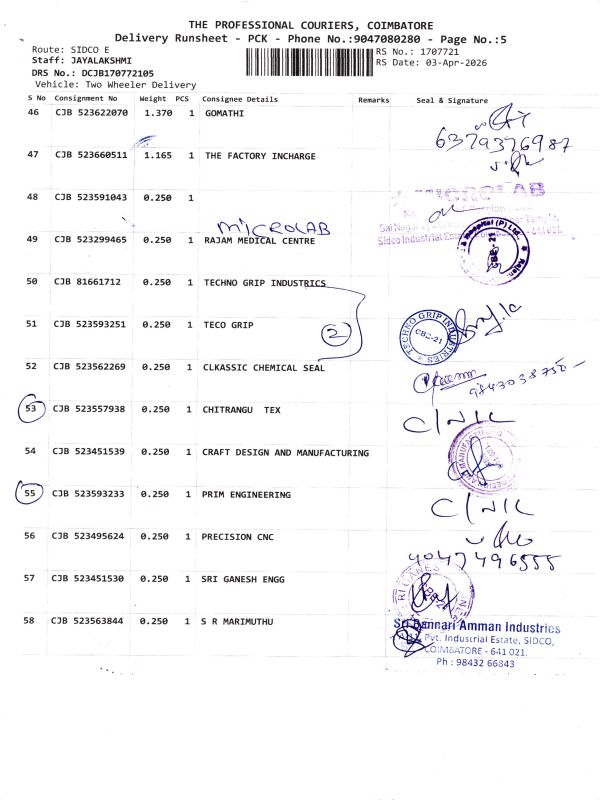 THE PROFESSIONAL COURIERS, COIMBATORE
Delivery Runsheet - PCK - Phone No.:9047080280 - Page No.:5
Route: SIDCO E RS No.: 1707721
Staff: JAYALAKSHMI RS Date: 03-Apr-2026
DRS No.: DCJB170772105
Vehicle: Two Wheeler Delivery
S No Consignment No Weight PCS Consignee Details Remarks Seal & Signature
46 CJB 523622070 1.370 1 GOMATHI
6379376987
47 CJB 523660511 1.165 1 THE FACTORY INCHARGE
48 CJB 523591043 0.250 1
MICROLAB
MICROLAB
Sidco Industrial Estate
49 CJB 523299465 0.250 1 RAJAM MEDICAL CENTRE
Hospital (P) Ltd. CBE-21
50 CJB 81661712 0.250 1 TECHNO GRIP INDUSTRICS
51 CJB 523593251 0.250 1 TECO GRIP
2
TECHNO GRIP INDUSTRIES CBE-21
52 CJB 523562269 0.250 1 CLKASSIC CHEMICAL SEAL
9843038750
53 CJB 523557938 0.250 1 CHITRANGU TEX
C/NIL
54 CJB 523451539 0.250 1 CRAFT DESIGN AND MANUFACTURING
55 CJB 523593233 0.250 1 PRIM ENGINEERING
C/NIL
56 CJB 523495624 0.250 1 PRECISION CNC
9047496555
57 CJB 523451530 0.250 1 SRI GANESH ENGG
58 CJB 523563844 0.250 1 S R MARIMUTHU
Sri Bannari Amman Industries
Pvt. Industrial Estate, SIDCO,
COIMBATORE - 641 021.
Ph : 98432 66843